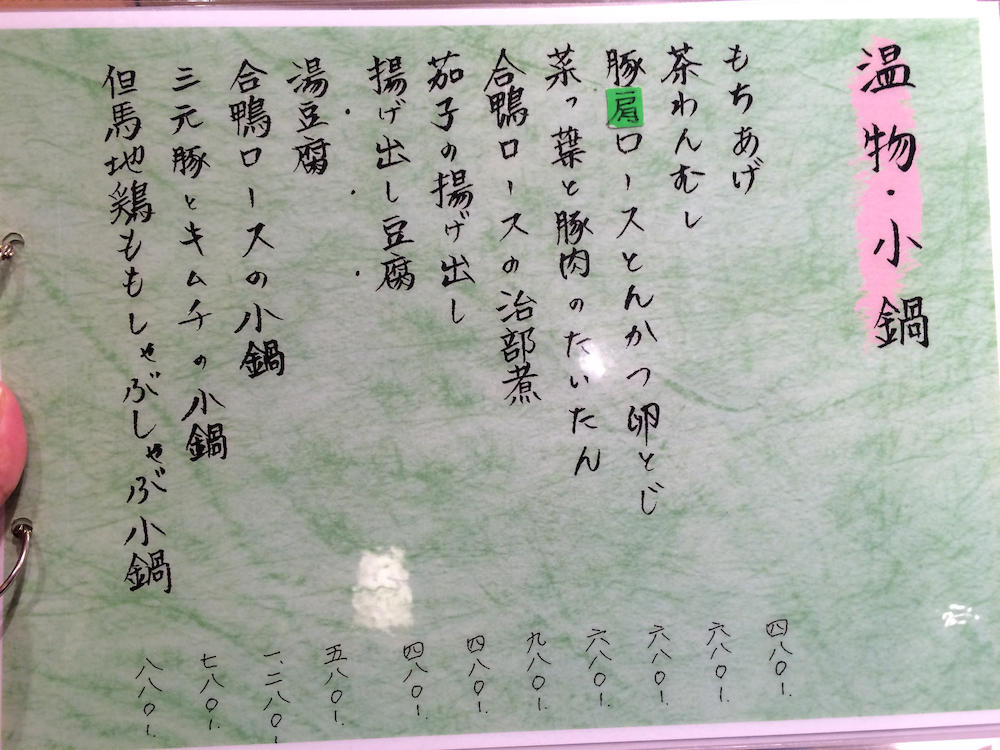 温物・小鍋
もちあげ 四八〇-.
茶わんむし 六八〇-.
豚肩ロースとんかつ卵とじ 六八〇-.
菜っ葉と豚肉のたいたん 六八〇-.
合鴨ロースの治部煮 九八〇-.
茄子の揚げ出し 四八〇-.
揚げ出し豆腐 四八〇-.
湯豆腐 五八〇-.
合鴨ロースの小鍋 一、二八〇-.
三元豚とキムチの小鍋 七八〇-.
但馬地鶏ももしゃぶしゃぶ小鍋 八八〇-.